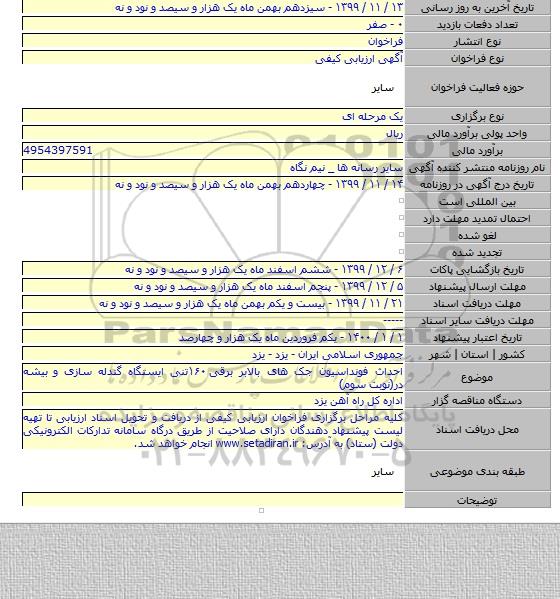 تاریخ آخرین به روز رسانی ۱۳ / ۱۱ / ۱۳۹۹ - سیزدهم بهمن ماه یک هزار و سیصد و نود و نه
تعداد دفعات بازدید ۰ - صفر
نوع انتشار فراخوان
نوع فراخوان آگهی ارزیابی کیفی
حوزه فعالیت فراخوان سایر
نوع برگزاری یک مرحله ای
واحد پولی برآورد مالی ریال
برآورد مالی 4954397591
نام روزنامه منتشر کننده آگهی سایر رسانه ها _ نیم نگاه
تاریخ درج آگهی در روزنامه ۱۴ / ۱۱ / ۱۳۹۹ - چهاردهم بهمن ماه یک هزار و سیصد و نود و نه
بین المللی است
احتمال تمدید مهلت دارد
لغو شده
تجدید شده
تاریخ بازگشایی پاکات ۶ / ۱۲ / ۱۳۹۹ - ششم اسفند ماه یک هزار و سیصد و نود و نه
مهلت ارسال پیشنهاد ۵ / ۱۲ / ۱۳۹۹ - پنجم اسفند ماه یک هزار و سیصد و نود و نه
مهلت دریافت اسناد ۲۱ / ۱۱ / ۱۳۹۹ - بیست و یکم بهمن ماه یک هزار و سیصد و نود و نه
مهلت دریافت سایر اسناد -----
تاریخ اعتبار پیشنهاد ۱ / ۱ / ۱۴۰۰ - یکم فروردین ماه یک هزار و چهارصد
کشور | استان | شهر جمهوری اسلامی ایران - یزد - یزد
موضوع احداث فونداسیون جک های بالابر برقی ۱۶۰تنی ایستگاه گندله سازی و بیشه
در(نوبت سوم)
دستگاه مناقصه گزار اداره کل راه آهن یزد
محل دریافت اسناد کلیه مراحل برگزاری فراخوان ارزیابی کیفی از دریافت و تحویل اسناد ارزیابی تا تهیه
لیست پیشنهاد دهندگان دارای صلاحیت از طریق درگاه سامانه تدارکات الکترونیکی
دولت (ستاد) به آدرس: www.setadiran.ir انجام خواهد شد.
طبقه بندی موضوعی سایر
توضیحات
ParsNamadData
۰۲۱-۸۸۳۴۹۶۷۰-۵